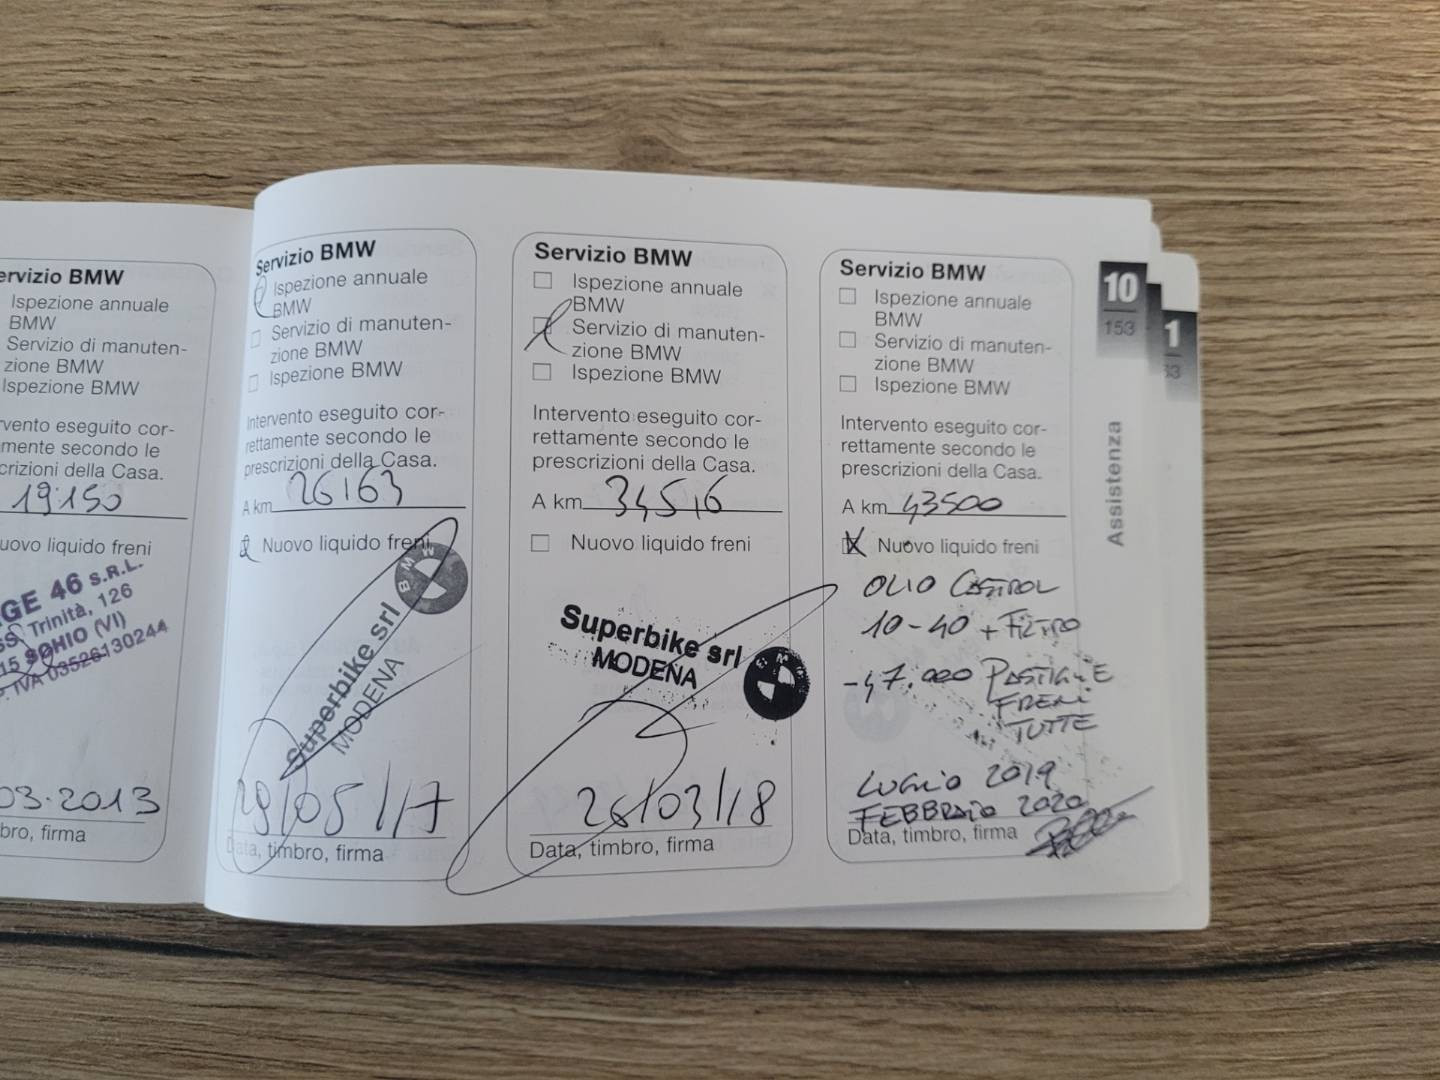 ervizio BMW
Ispezione annuale
BMW
Servizio di manuten-
zione BMW
Ispezione BMW
rvento eseguito cor-
mente secondo le
crizioni della Casa.
19150
uovo liquido freni
GE 46 S.R.L.
SS. Trinità, 126
15 SCHIO (VI)
IVA 03526130244
03.2013
bro, firma
Servizio BMW
Ispezione annuale
BMW
Servizio di manuten-
zione BMW
Ispezione BMW
Intervento eseguito cor-
rettamente secondo le
prescrizioni della Casa.
A km 26163
Nuovo liquido freni
BMW
Superbike srl
MODENA
29/05/17
Data, timbro, firma
Servizio BMW
Ispezione annuale
BMW
Servizio di manuten-
zione BMW
Ispezione BMW
Intervento eseguito cor-
rettamente secondo le
prescrizioni della Casa.
A km 34516
Nuovo liquido freni
Superbike srl
MODENA
BMW
26/03/18
Data, timbro, firma
Servizio BMW
Ispezione annuale
BMW
Servizio di manuten-
zione BMW
Ispezione BMW
Intervento eseguito cor-
rettamente secondo le
prescrizioni della Casa.
A km 43500
Nuovo liquido freni
OLIO CASTROL
10-40 + FILTRO
-47.000 PASTIGLIE
FRENI
TUTTE
LUGLIO 2019
FEBBRAIO 2020
Data, timbro, firma
10
153
Assistenza
1